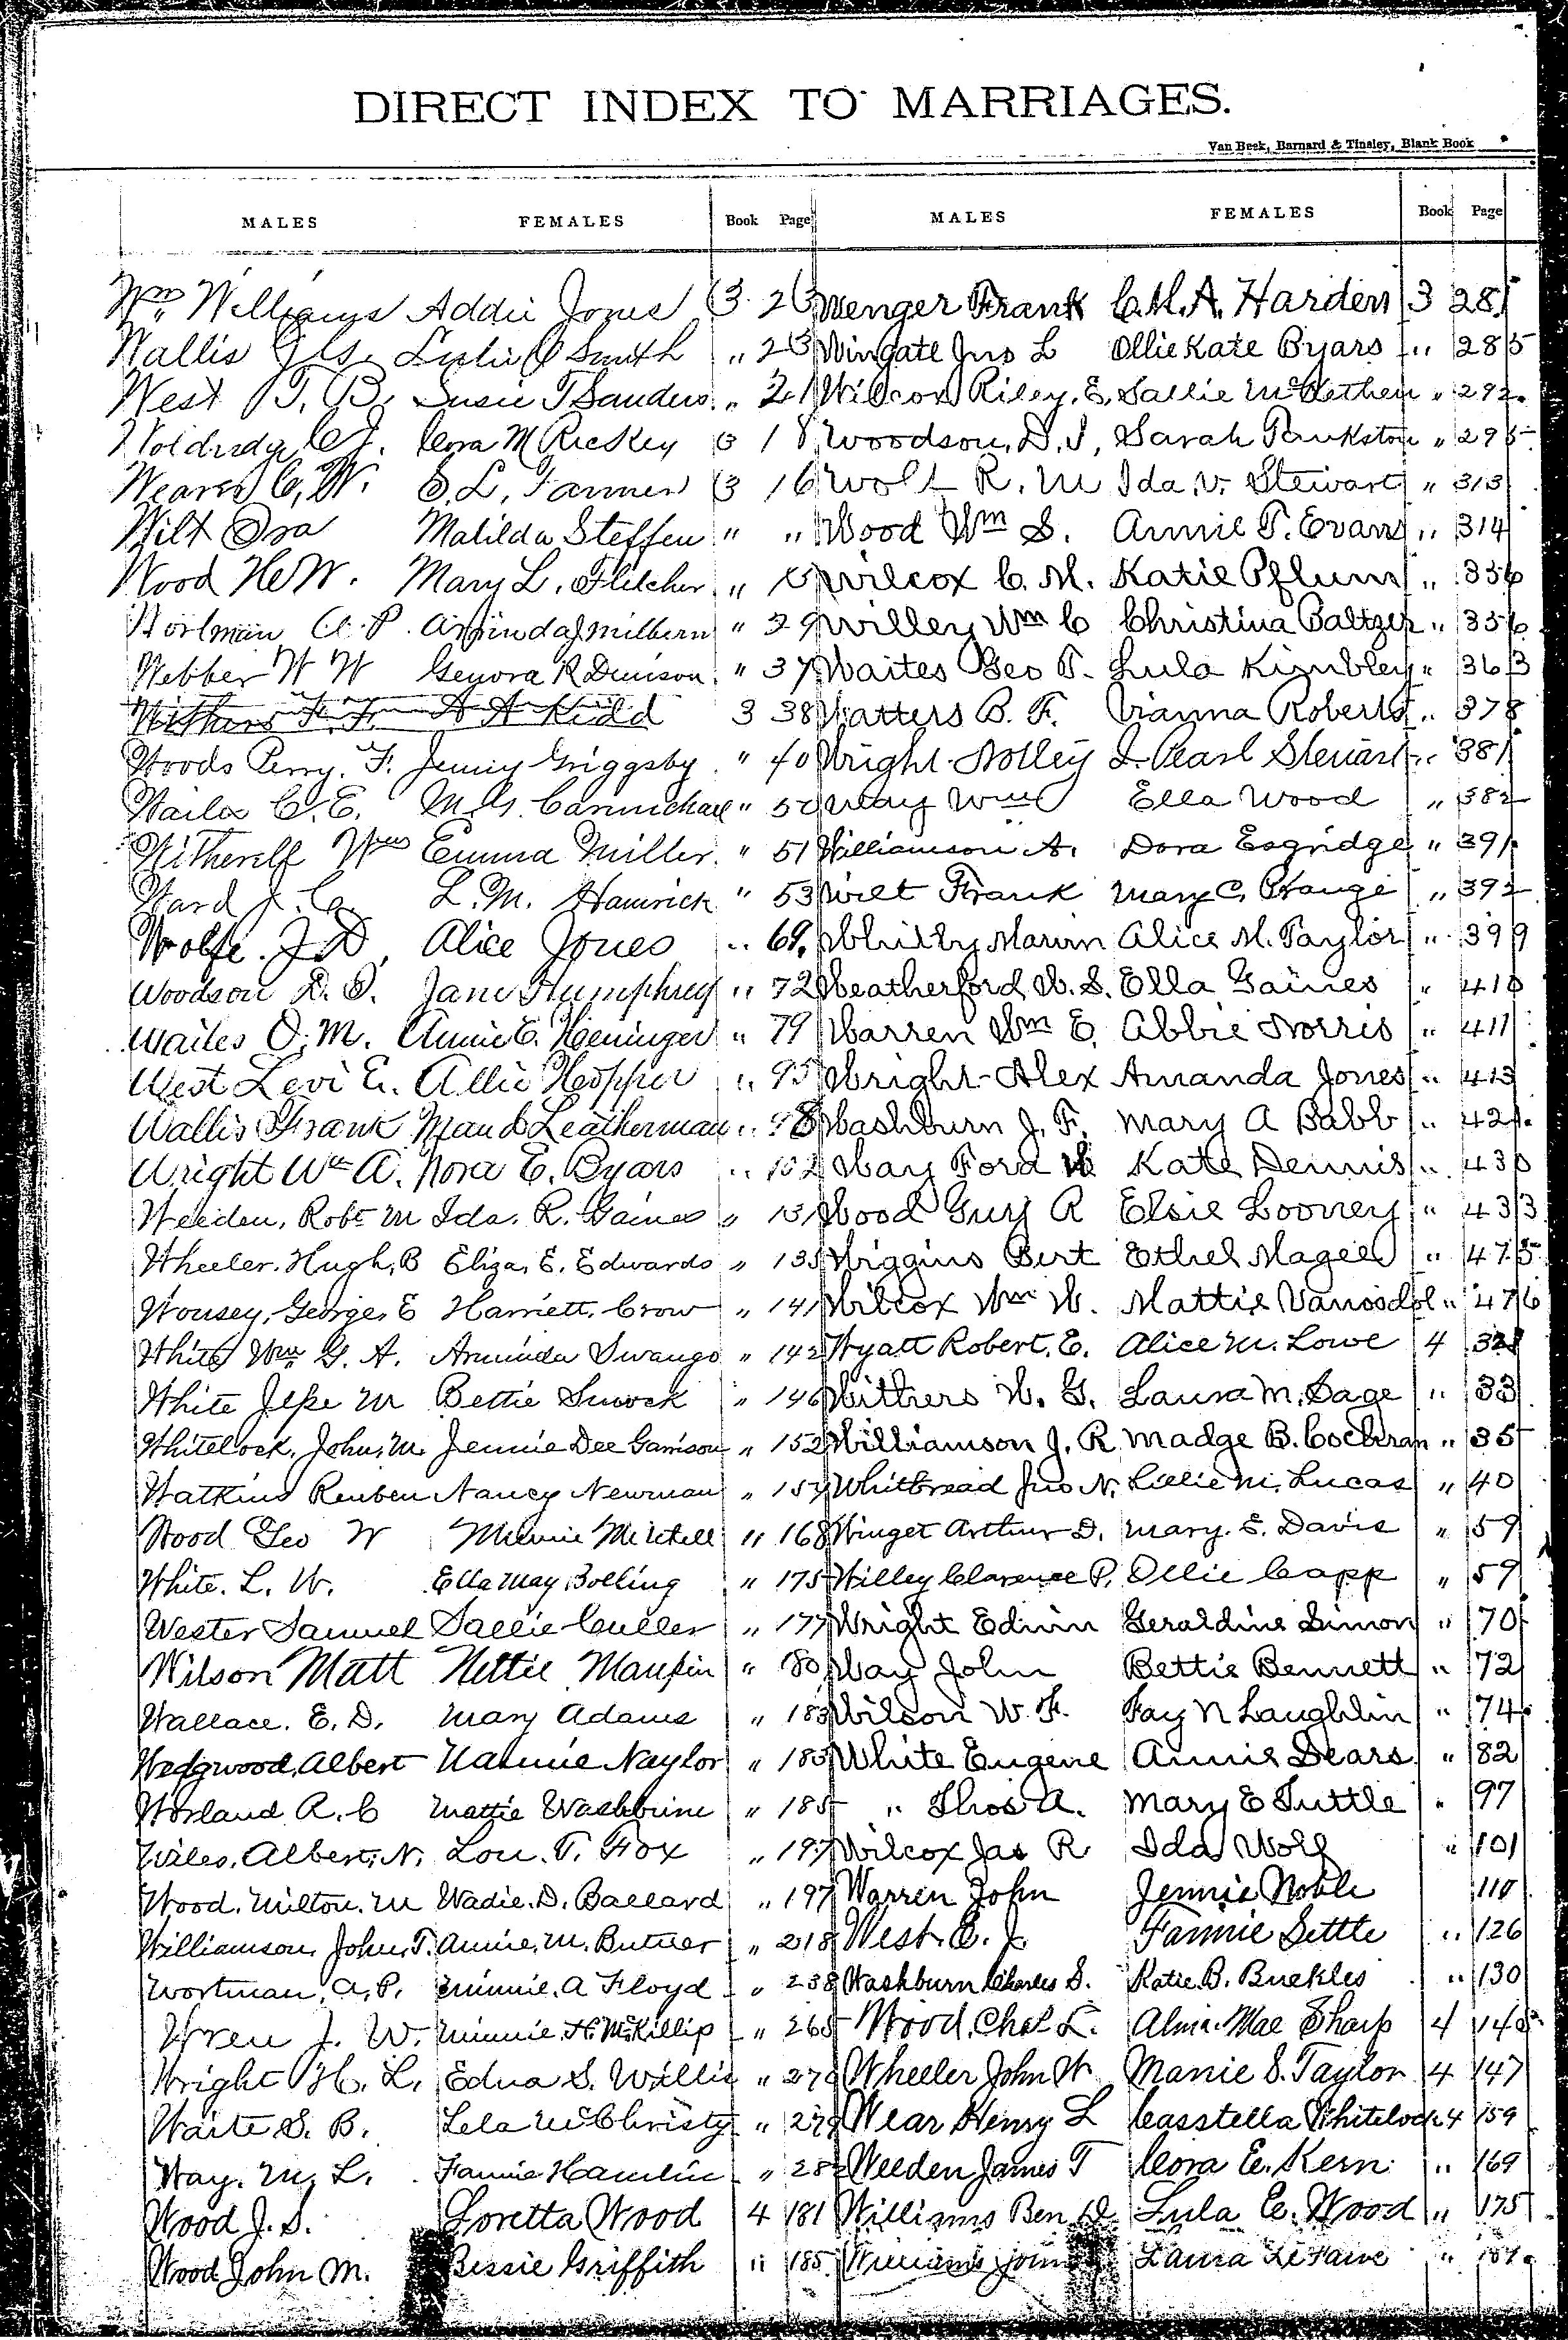 DIRECT INDEX TO MARRIAGES.
Van Beek, Barnard & Tinsley, Blank Book
MALES FEMALES Book Page MALES FEMALES Book Page
Wm Williams Addie Jones 3 Wenger Frank C.M.A. Harden 3 281
Wallis Smith " Wingate Jno L Ollie Kate Byars " 285
West T. B. Susie T Sanders " 21 Wilcox Riley. E. Sallie " 292
C.J. Cora M Rickey 3 18 Woodson, D. S, Sarah Pankston " 295
Weaver C. W. S. L. Farmer 3 16 Wolt R. M Ida V. Stewart " 313
Wilt Ora Matilda Steffen " " Wood Wm S. Annie T. Evans " 314
Wood Mary L. Fletcher " Wilcox C. M. Katie Pflum " 356
A. P. Milbern " 29 Willey Wm C Christina Baltzer " 356
Webber W W Genora R Denison " 37 Waites Geo T. Lula Kimbley " 363
A A Kidd 3 38 Watters B. F. Vianna Roberts " 378
Woods Perry. F. Jenny Griggsby " 40 Wright Nolley I. Pearl Stewart " 381
C. E. M. G. Carmichael " Way Wm Ella Wood " 382
Witherell Wm Emma Miller " 51 Williamson A. Dora Esgridge " 391
Ward J. C. L. M. Hamrick " 53 Wilt Frank Mary C. Prange " 392
Wolfe. J. D, Alice Jones " 69. Whitty Marvin Alice M. Taylor " 399
Woodson D. S. Jane Humphrey " 72 Weatherford W. S. Ella Gaines " 410
Wailes O. M. Annie E. Heninger " 79 Warren Wm E. Abbie Norris " 411
West Levi E. Allie Hopper " 95 Wright Alex Amanda Jones " 413
Wallis Frank Maud Leatherman " 98 Washburn J. F. Mary A Babb " 421
Wright Wm A. Nora E. Byars " 102 Way Ford Kate Dennis " 430
Weeden, Robt M Ida. R. Gaines " 131 Wood Guy R Elsie Looney " 433
Wheeler. Hugh, B Eliza, E. Edwards " 135 Wiggins Bert Ethel Magee " 475
Wousey, George, E Harriett. Crow " 141 Wilcox Wm W. Mattie Vanosdol " 476
White Wm G. A. Arminda Swango " 142 Wyatt Robert. E. Alice M. Lowe 4
White Jesse M Bettie " 146 Withers W. G. Laura M. Sage " 33
Whitelock, John, M. Jennie Dee Garrison " 152 Williamson J. R Madge B. Cochran " 35
Watkins Reuben Nancy Newman " 157 Whitbread Jno N. Lillie M. Lucas " 40
Wood Geo W Minnie Mitchell " 168 Winget Arthur D. Mary. E. Davis " 59
White. L. W. Ella May Bolling " 175 Willey Clarence P. Ollie Capp " 59
Wester Samuel Sallie Culler " 177 Wright Edwin Geraldine Simon " 70
Wilson Matt Nettie Maupin " 180 Way John Bettie Bennett " 72
Wallace. E. D. Mary Adams " 183 Wilson W. F. Fay N Laughlin " 74
Wedgwood, Albert Nannie Naylor " 183 White Eugene Annie Sears " 82
Worland R. C Mattie Washburne " 185 " Thos A. Mary E Tuttle " 97
Wiles, Albert, N, Lou. T. Fox " 197 Wilcox Jas R Ida Wolf " 101
Wood. Milton. M Wadie. D. Ballard " 197 Warren John Jennie Noble 110
Williamson, John, T. Annie, M. Butner " 218 West E. J. Fannie Settle " 126
Wortman, A. P. Minnie. A Floyd " 238 Washburn Charles S. Katie. B. Buckles " 130
Wren J. W. Minnie. H. McKillip " 265 Wood, Chas L. Alma Mae Sharp 4
Wright H. L. Edna S. Willis " 270 Wheeler John W. Manie S. Taylor 4 147
Waite S. B. Lela McChristy " 279 Wear Henry L Casstella Whitelock 4 159
Way. M, L. Fannie Hamlin " 282 Weeden James T Cora E. Kern " 169
Wood J. S. Loretta Wood 4 181 Williams Ben D. Lula E. Wood " 175
Wood John M. Bessie Griffith " 185 Williams John Laura "